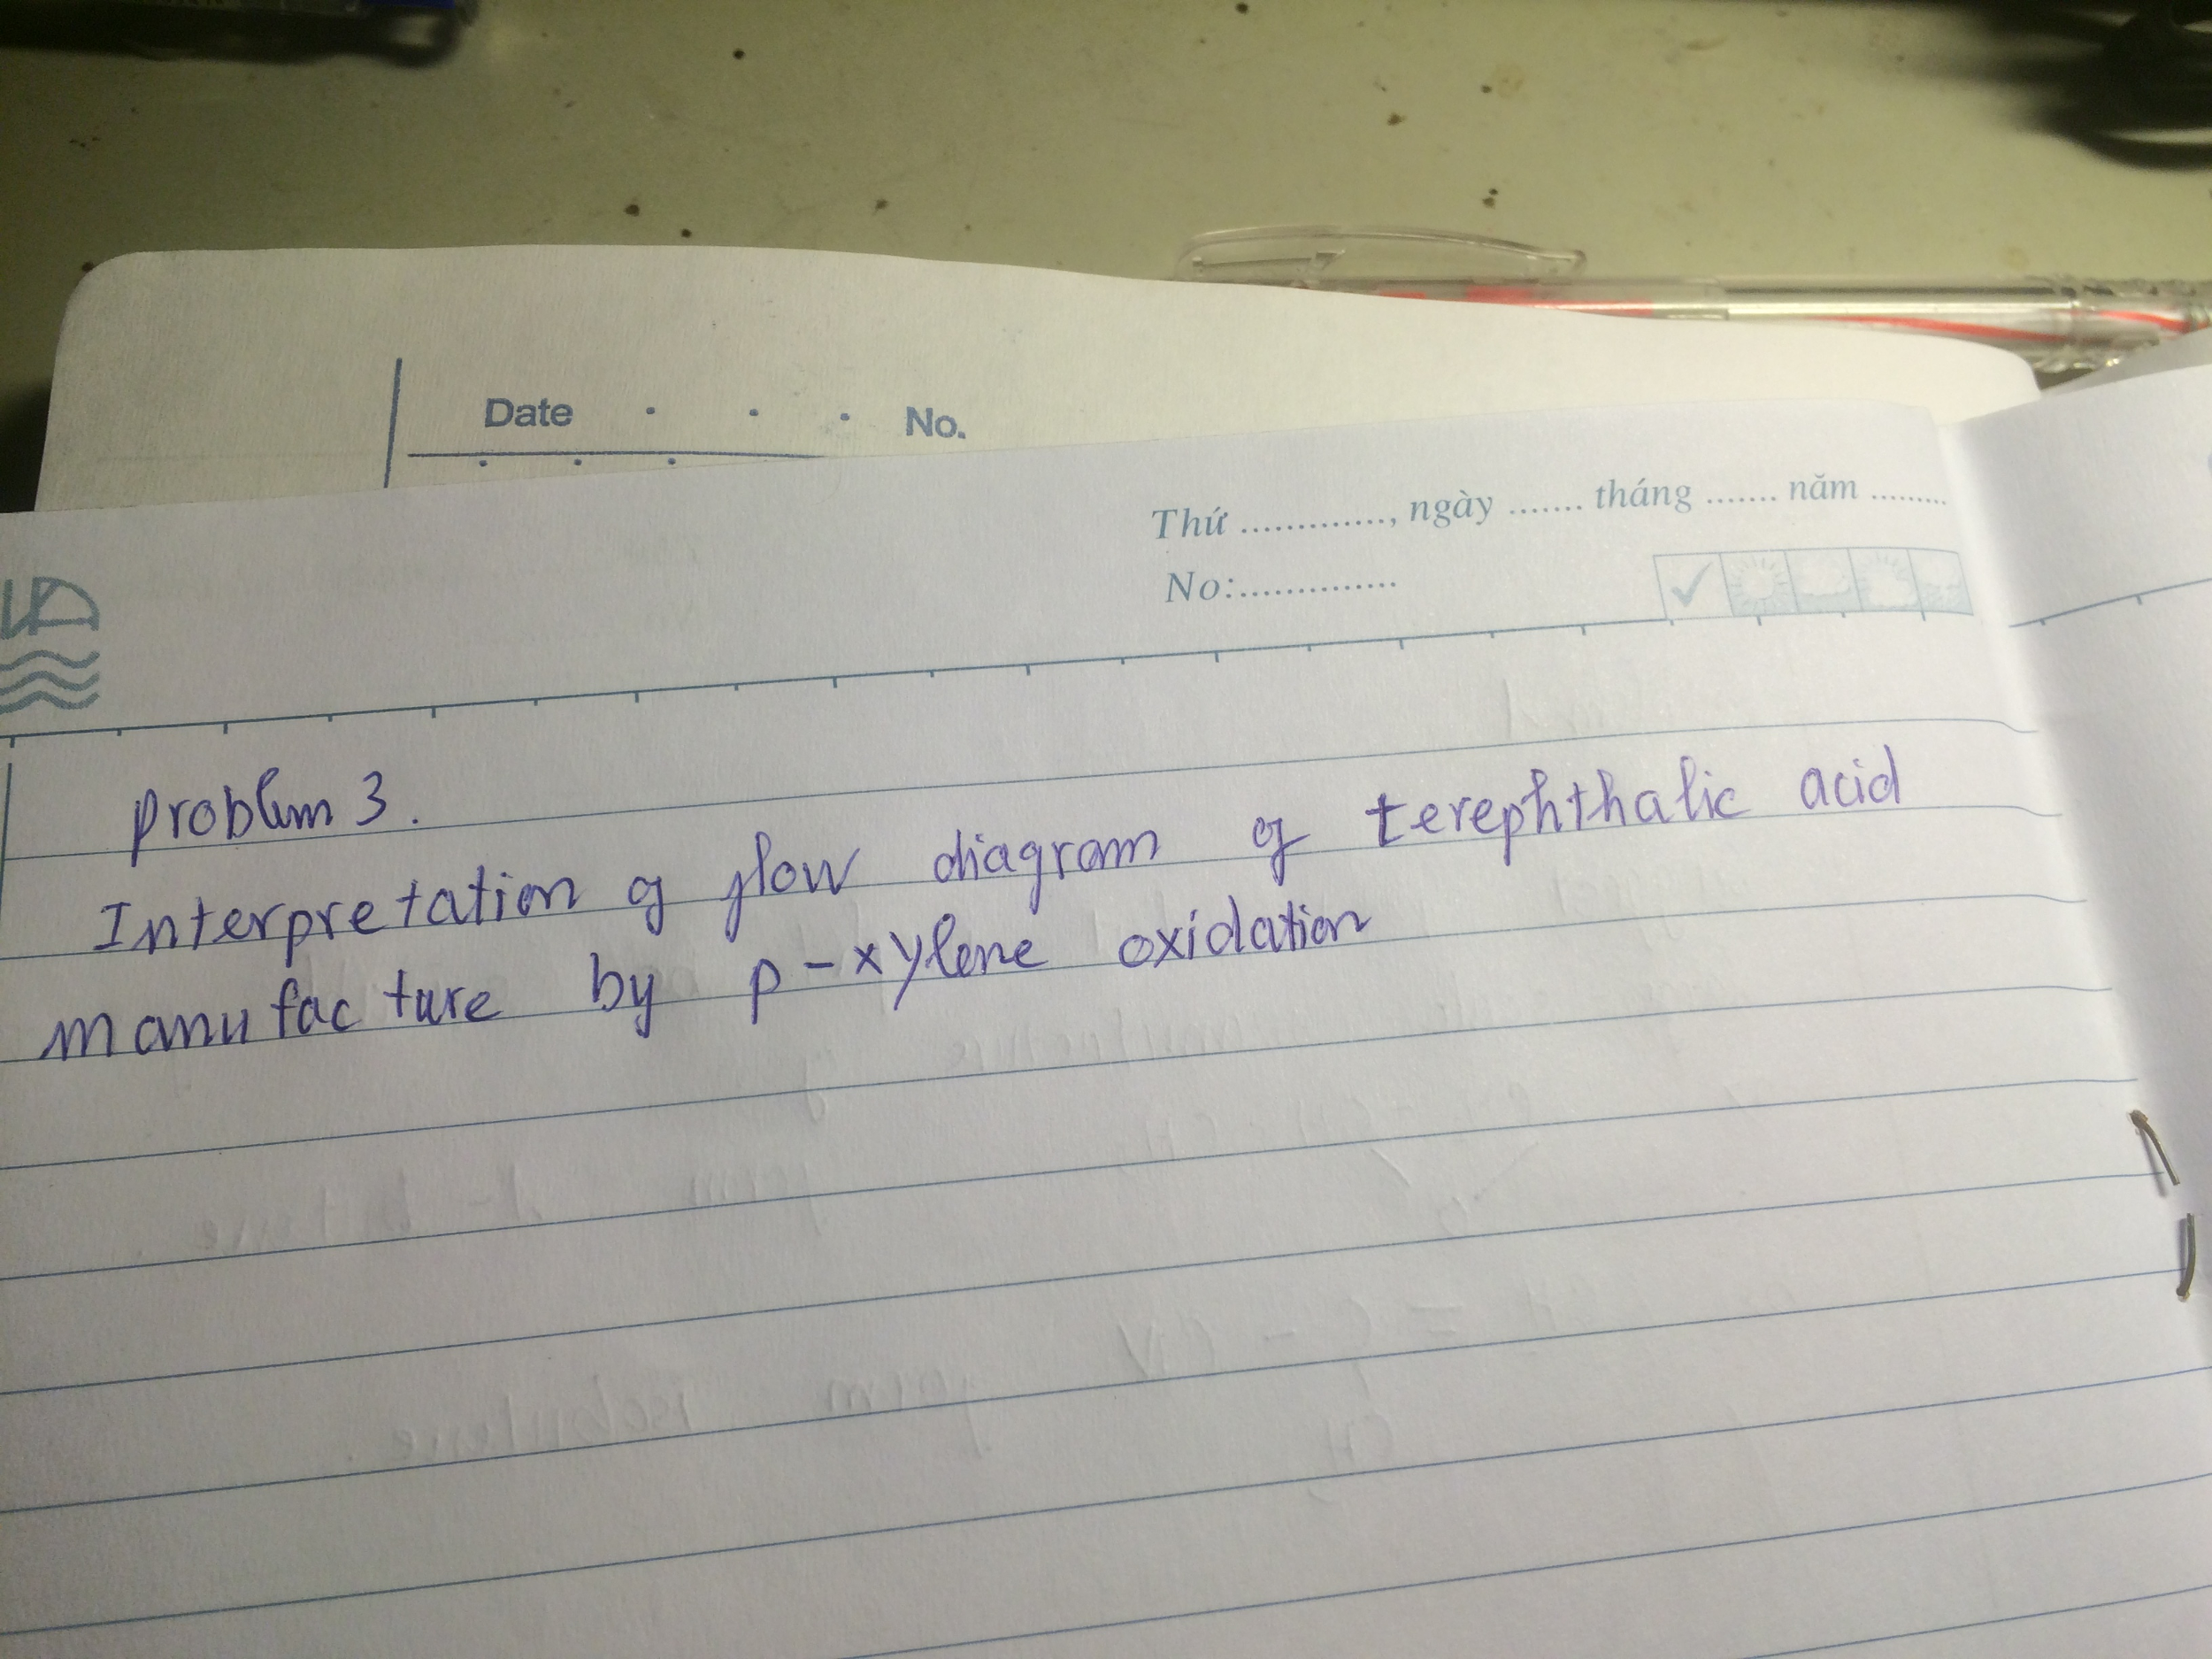 Date . . . No.
Thứ .............., ngày ....... tháng ....... năm .........
No:..............
problem 3.
Interpretation of flow diagram of terephthalic acid
manufacture by p-xylene oxidation